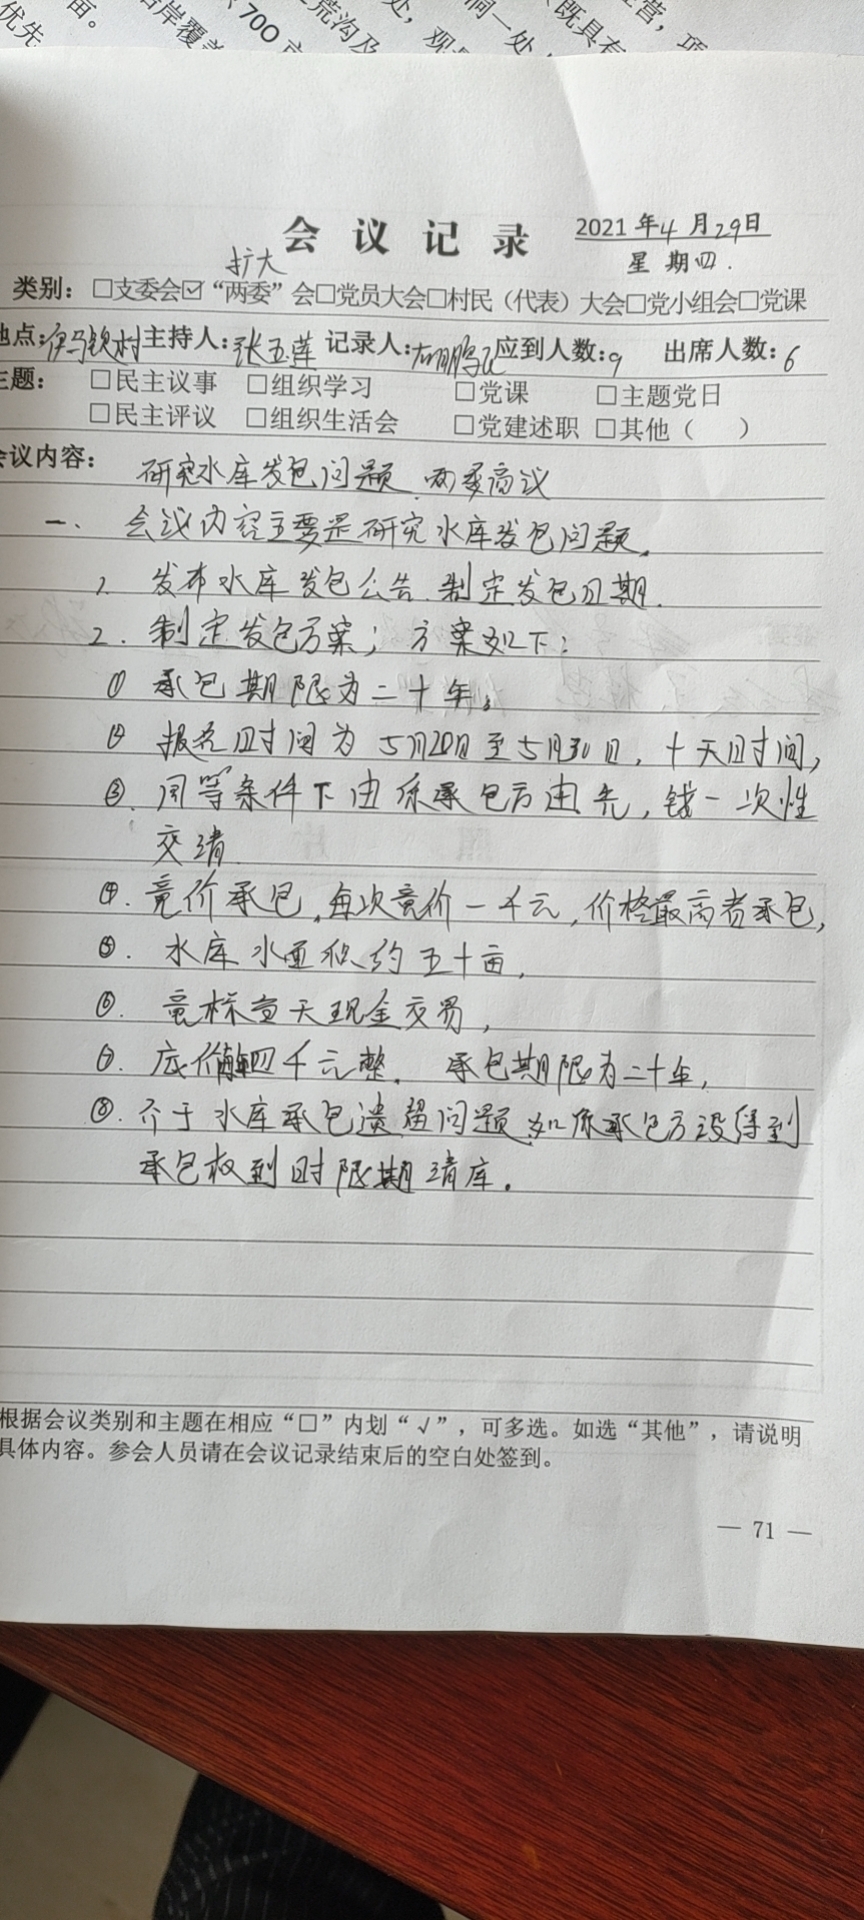 优先
亩。
沿岸覆盖
700
荒沟及
处，观
洞一处
既具有
营，项
会议记录
2021年4月29日
星期四.
扩大
类别：□支委会☑“两委”会□党员大会□村民（代表）大会□党小组会□党课
地点:伊马钦村主持人:张玉莲 记录人: 应到人数:9 出席人数:6
主题： □民主议事 □组织学习 □党课 □主题党日
□民主评议 □组织生活会 □党建述职 □其他（ ）
会议内容： 研究水库发包问题.两委商议
一、会议内容主要是研究水库发包问题。
1 发布水库发包公告.制定发包日期.
2.制定发包方案；方案如下:
① 承包期限为二十年。
② 报名时间为5月20日至5月30日，十天时间，
③.同等条件下由原承包方由先，钱一次性
交清.
④.竞价承包,每次竞价一千元,价格最高者承包,
⑤.水库水面积约五十亩，
⑥.竞标当天现金交易，
⑦.底价 四千元整. 承包期限为二十年，
⑧.介于水库承包遗留问题.如原承包方没得到
承包权到时限期清库.
根据会议类别和主题在相应“□”内划“√”，可多选。如选“其他”，请说明
具体内容。参会人员请在会议记录结束后的空白处签到。
— 71 —